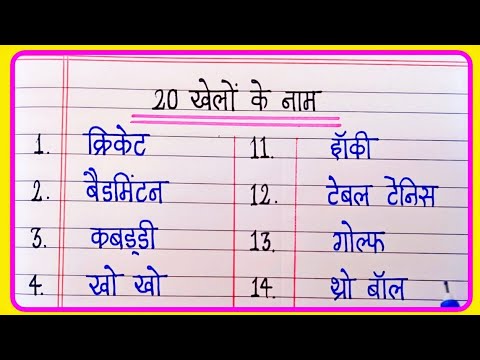 20 खेलों के नाम
1. क्रिकेट 11. हॉकी
2. बैडमिंटन 12. टेबल टेनिस
3. कबड्डी 13. गोल्फ
4. खो खो 14. थ्रो बॉल